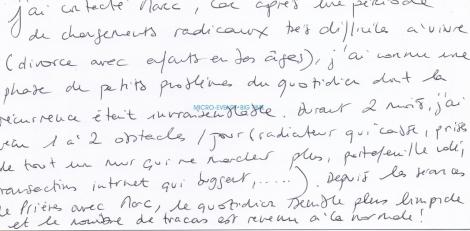 j'ai contacté Marc, car après une période
de changements radicaux très difficile à vivre
(divorce avec enfants en bas âges), j'ai connu une
phase de petits problèmes du quotidien dont la
récurrence était invraisemblable. Durant 2 mois, j'ai
MICRO-EVENT BIG
1 à 2 obstacles / jour (radiateur qui casse, prises
de tout un mur qui ne marchent plus, portefeuille volé,
transactions internet qui buggent, .....). Depuis les séances
de Prières avec Marc, le quotidien semble plus limpide
et le nombre de tracas est revenu à la normale !